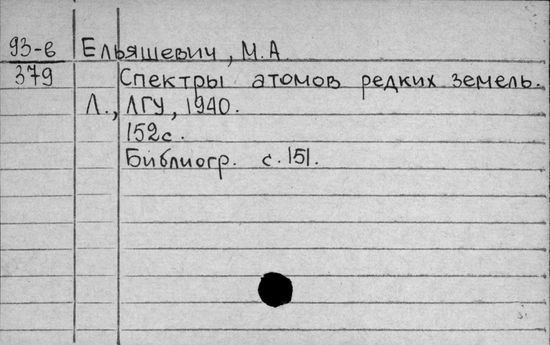 93-в Ельяшевич, М.А
379 Спектры атомов редких земель.
Л., ЛГУ, 1940.
152с.
Библиогр. с. 151.